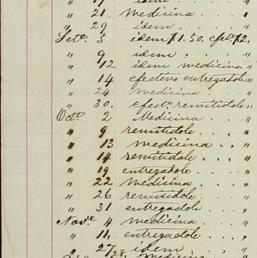 " 17 " . . "
" 21. Medicina . . "
" 29 idem . . "
Sete. 5 idem $1.50. efec. $2,
" 9 idem . . "
" 12 idem medicina "
" 14 efectivo entregadole "
" 24 medicina . . "
" 30. efect. remitidole "
Octe. 2 Medicina . . "
" 9 remitidole . . . "
" 13 medicina . . . "
" 14 remitidole . . "
" 19 entregadole . . "
" 22 Medicina . . "
" 26 remitidole . . "
" 31 entregadole . . "
Nove. 4 medicina . . "
" 11, entregadole . . "
" 27 idem . . "
28, Medicina "